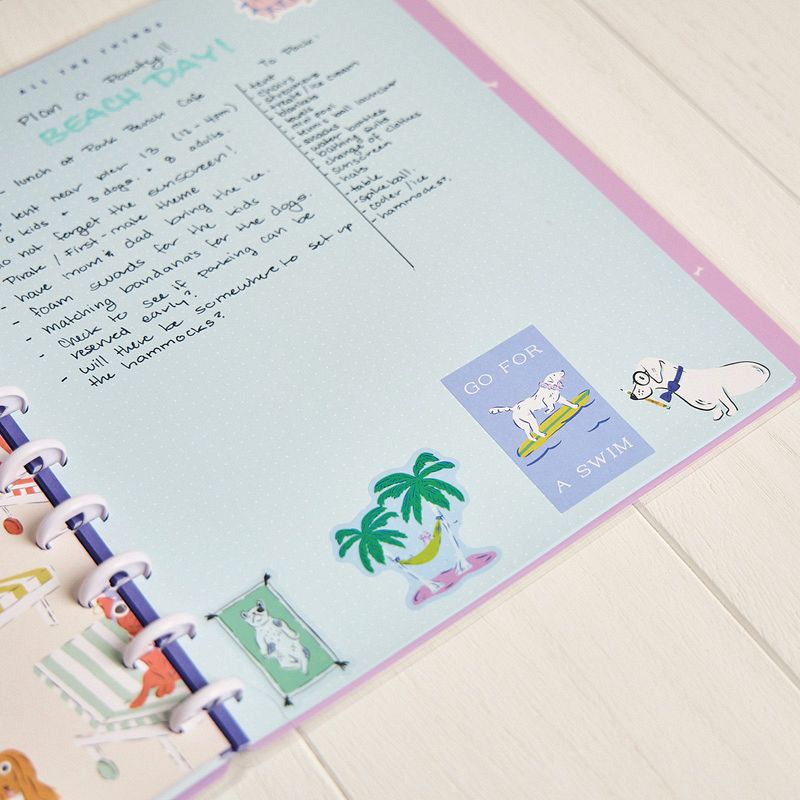 ALL THE THINGS
Plan a Pawty!!
BEACH DAY!
- lunch at Park Bench Cafe
tent near pier 13 (12-4pm)
6 kids + 3 dogs + 8 adults.
do not forget the sunscreen!
Pirate / First-mate theme
- have mom & dad bring the ice.
- foam swords for the kids
- matching bandana's for the dogs.
- check to see if parking can be
reserved early?
- will there be somewhere to set up
the hammocks?
To Pack:
- tent
- chairs
- streamers
- treats / ice cream
- blankets
- towels
- mini pool
- ball launcher
- snacks
- water bottles
- bathing suits
- change of clothes
- sunscreen
- hats
- table
- spikeball
- cooler / ice
- hammocks?
GO FOR
A SWIM